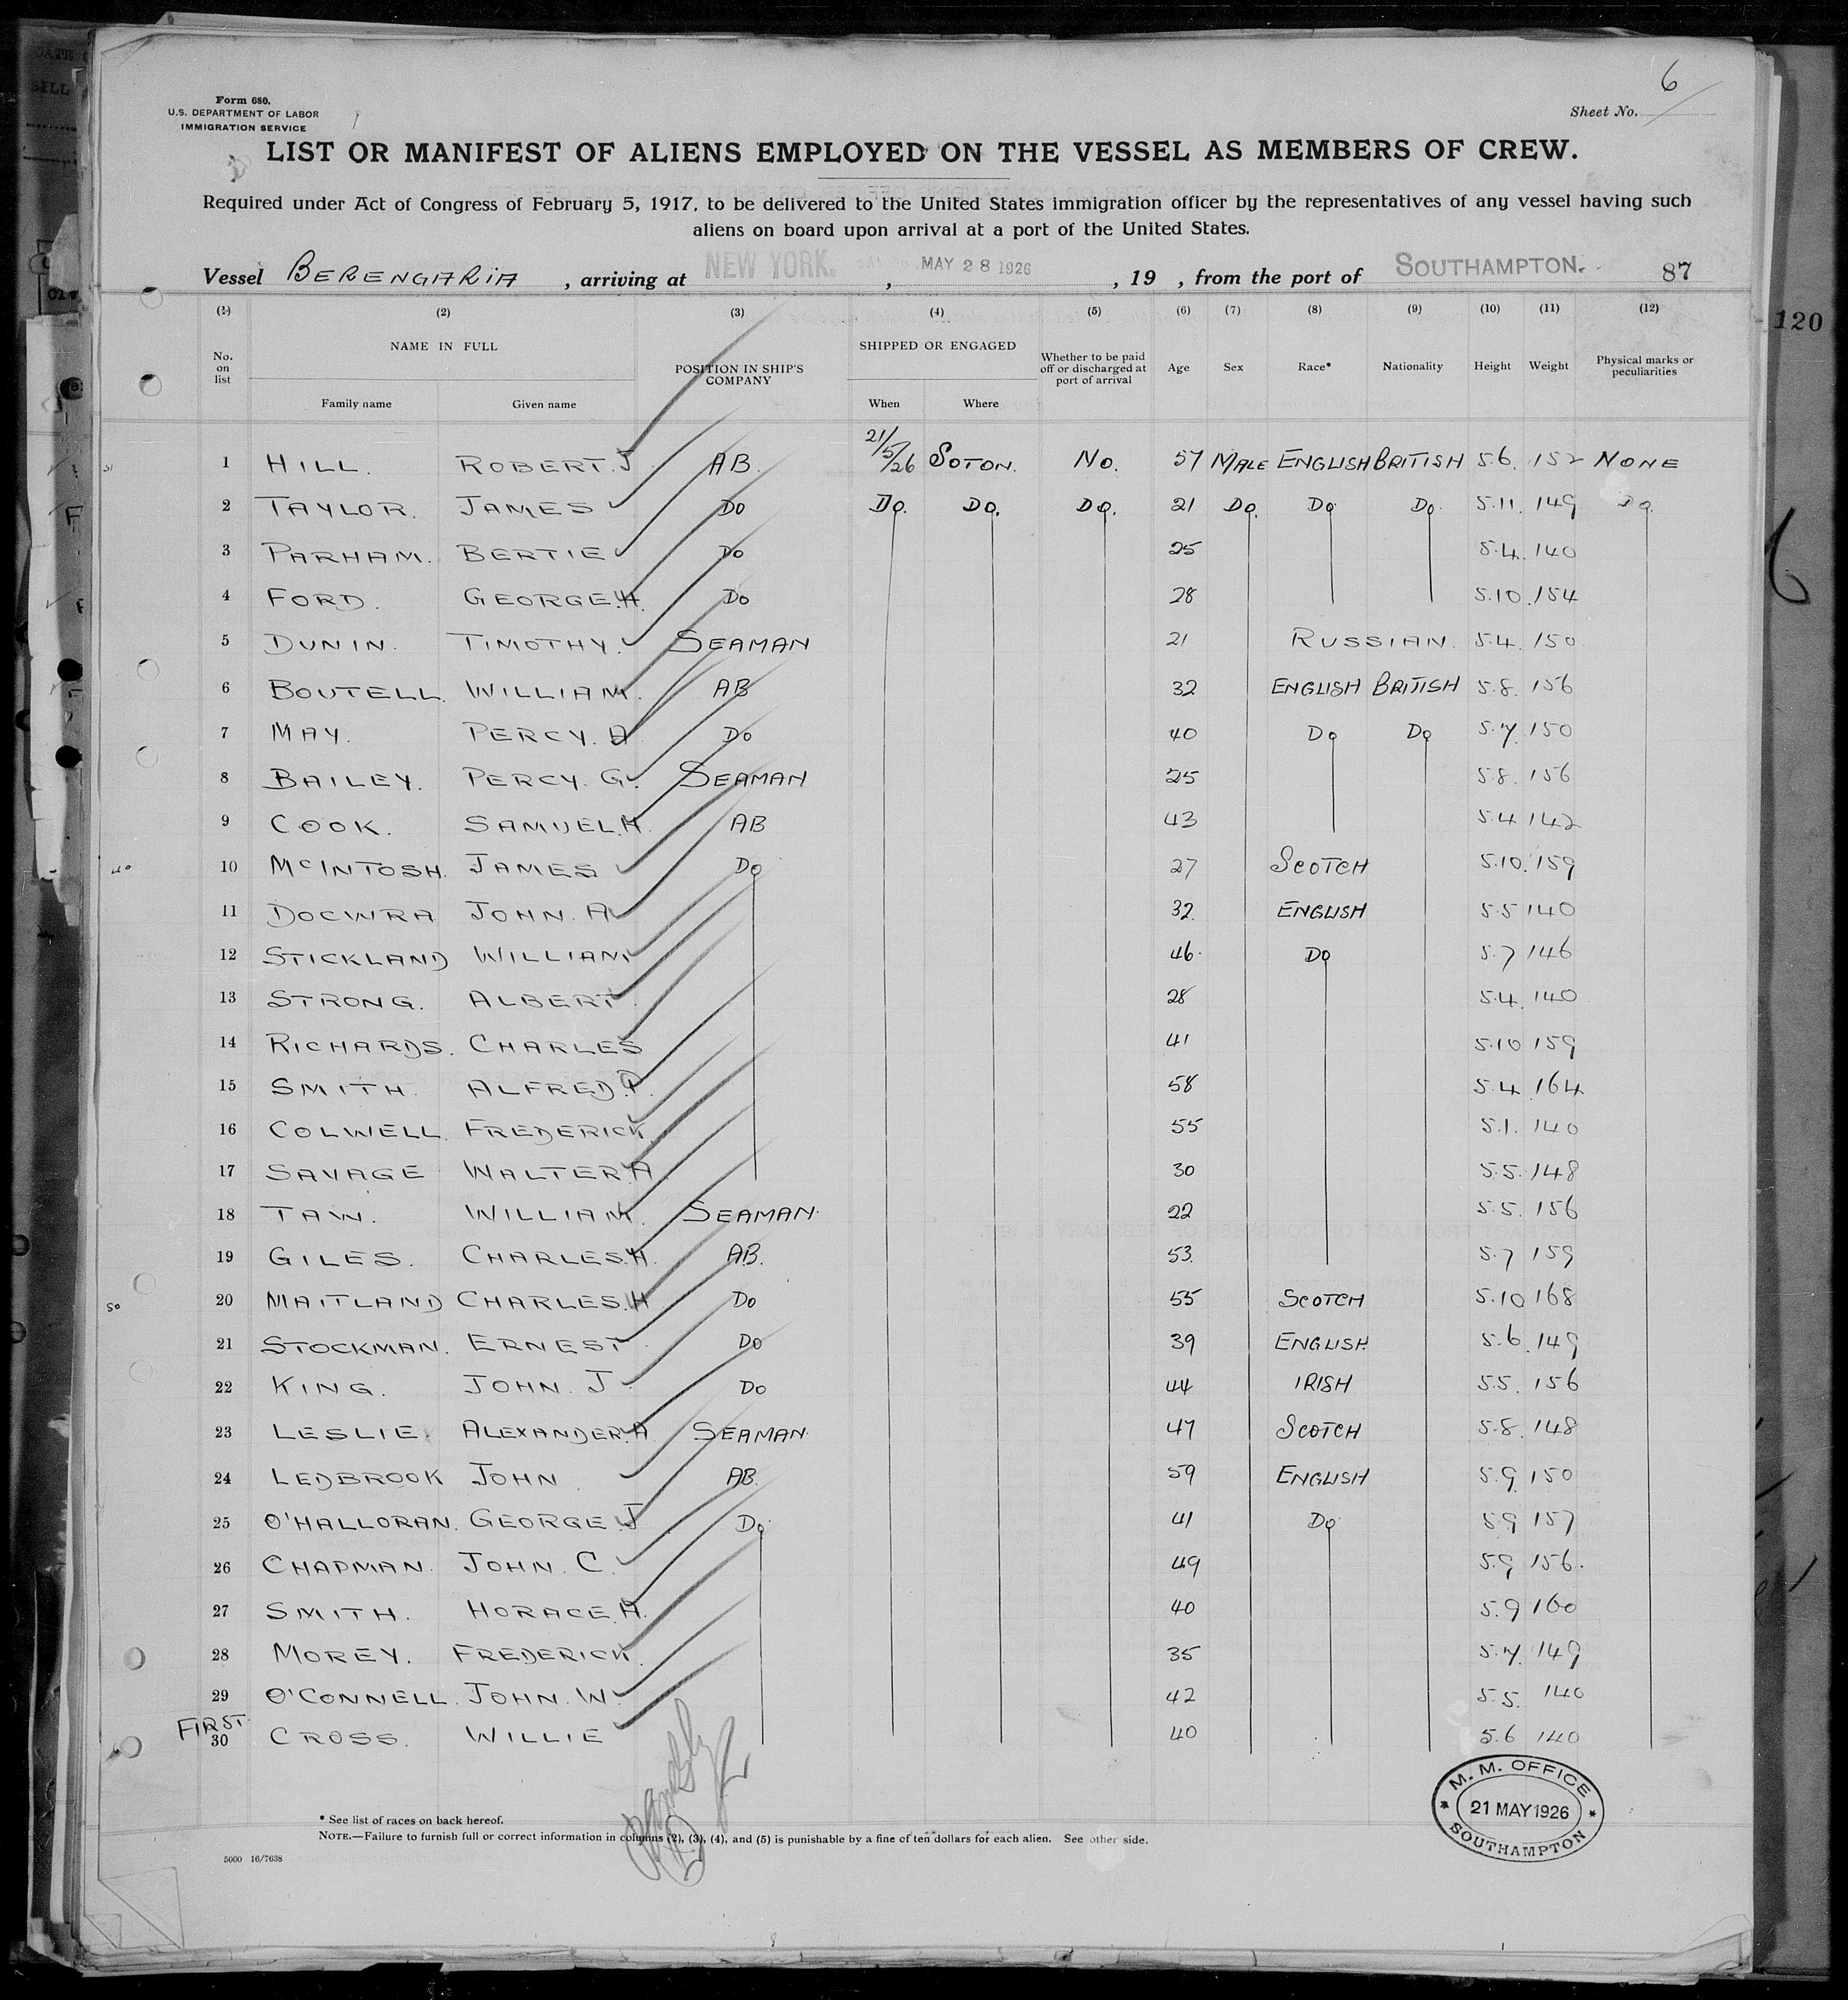 6
Form 680.
U.S. DEPARTMENT OF LABOR
IMMIGRATION SERVICE
Sheet No.
LIST OR MANIFEST OF ALIENS EMPLOYED ON THE VESSEL AS MEMBERS OF CREW.
Required under Act of Congress of February 5, 1917, to be delivered to the United States immigration officer by the representatives of any vessel having such
aliens on board upon arrival at a port of the United States.
Vessel BERENGARIA , arriving at NEW YORK. , MAY 28 1926 , 19 , from the port of SOUTHAMPTON. 87
120
(1) (2) (3) (4) (5) (6) (7) (8) (9) (10) (11) (12)
No. on list NAME IN FULL POSITION IN SHIP'S COMPANY SHIPPED OR ENGAGED Whether to be paid off or discharged at port of arrival Age Sex Race* Nationality Height Weight Physical marks or peculiarities
Family name Given name When Where
1 HILL. ROBERT. J AB. 21/5/26 SOTON. NO. 57 MALE ENGLISH BRITISH 5.6. 152 NONE
2 TAYLOR. JAMES DO DO. DO. DO. 21 DO. DO DO. 5.11. 149 DO.
3 PARHAM. BERTIE DO 25 5.4. 140
4 FORD. GEORGE. H. DO 28 5.10. 154
5 DUNIN. TIMOTHY. SEAMAN 21 RUSSIAN. 5.4. 150
6 BOUTELL. WILLIAM. AB 32 ENGLISH BRITISH 5.8. 156
7 MAY. PERCY. A DO 40 DO DO 5.7. 150
8 BAILEY. PERCY. G. SEAMAN 25 5.8. 156
9 COOK. SAMUEL. H. AB 43 5.4 142
10 McINTOSH. JAMES DO 27 SCOTCH 5.10. 159
11 DOCWRA JOHN. A DO 32. ENGLISH 5.5 140
12 STICKLAND WILLIAM 46. DO 5.7 146
13 STRONG. ALBERT. 28 5.4. 140
14 RICHARDS. CHARLES 41 5.10 159
15 SMITH. ALFRED. P. 58 5.4 164
16 COLWELL. FREDERICK. 55 5.1. 140
17 SAVAGE WALTER. A. 30 5.5. 148
18 TAW. WILLIAM. SEAMAN. 22 5.5. 156
19 GILES. CHARLES. H. AB. 53. 5.7 159
20 MAITLAND CHARLES. H DO 55 SCOTCH 5.10 168
21 STOCKMAN. ERNEST. DO 39 ENGLISH 5.6. 149
22 KING. JOHN. J. DO 44 IRISH 5.5. 156
23 LESLIE. ALEXANDER. A. SEAMAN. 47 SCOTCH 5.8. 148
24 LEDBROOK JOHN AB. 59 ENGLISH 5.9. 150
25 O'HALLORAN. GEORGE. J DO. 41 DO 5.9 157
26 CHAPMAN. JOHN. C. 49 5.9. 156.
27 SMITH. HORACE. A. 40 5.9 160
28 MOREY. FREDERICK. 35 5.7. 149
29 O'CONNELL. JOHN. W. 42 5.5. 140
FIRST
30 CROSS. WILLIE 40 5.6 140
M. M. OFFICE
21 MAY 1926
SOUTHAMPTON
* See list of races on back hereof.
NOTE.—Failure to furnish full or correct information in columns (2), (3), (4), and (5) is punishable by a fine of ten dollars for each alien. See other side.
5000 16/7638